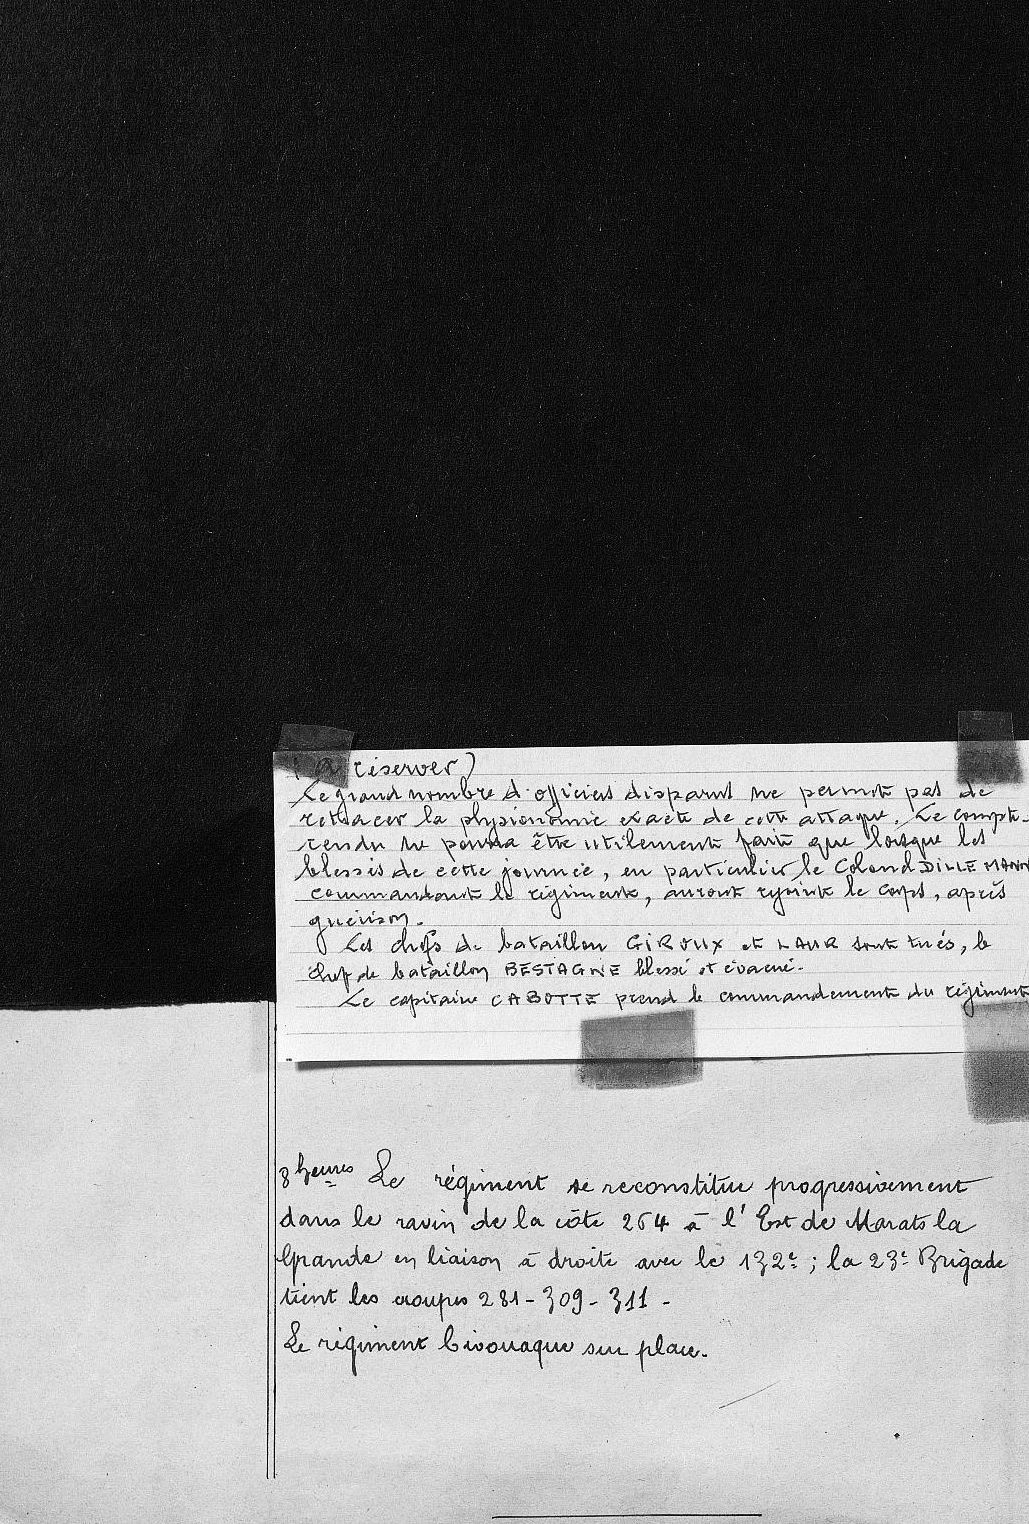 (à réserver)
Le grand nombre d'officiers disparus ne permet pas de
retracer la physionomie exacte de cette attaque. Le compte-
rendu ne pourra être utilement fait que lorsque les
blessés de cette journée, en particulier le Colonel DILLEMANN
commandant le régiment, auront rejoint le corps, après
guérison.
Les chefs de bataillon GIROUX et LAUR sont tués, le
chef de bataillon BESTAGNE blessé et évacué.
Le capitaine CABOTTE prend le commandement du régiment
8 heures Le régiment se reconstitue progressivement
dans le ravin de la côte 264 à l'Est de Marats la
Grande en liaison à droite avec le 132e; la 23e Brigade
tient les croupes 281-309-311-
Le régiment bivouaque sur place.